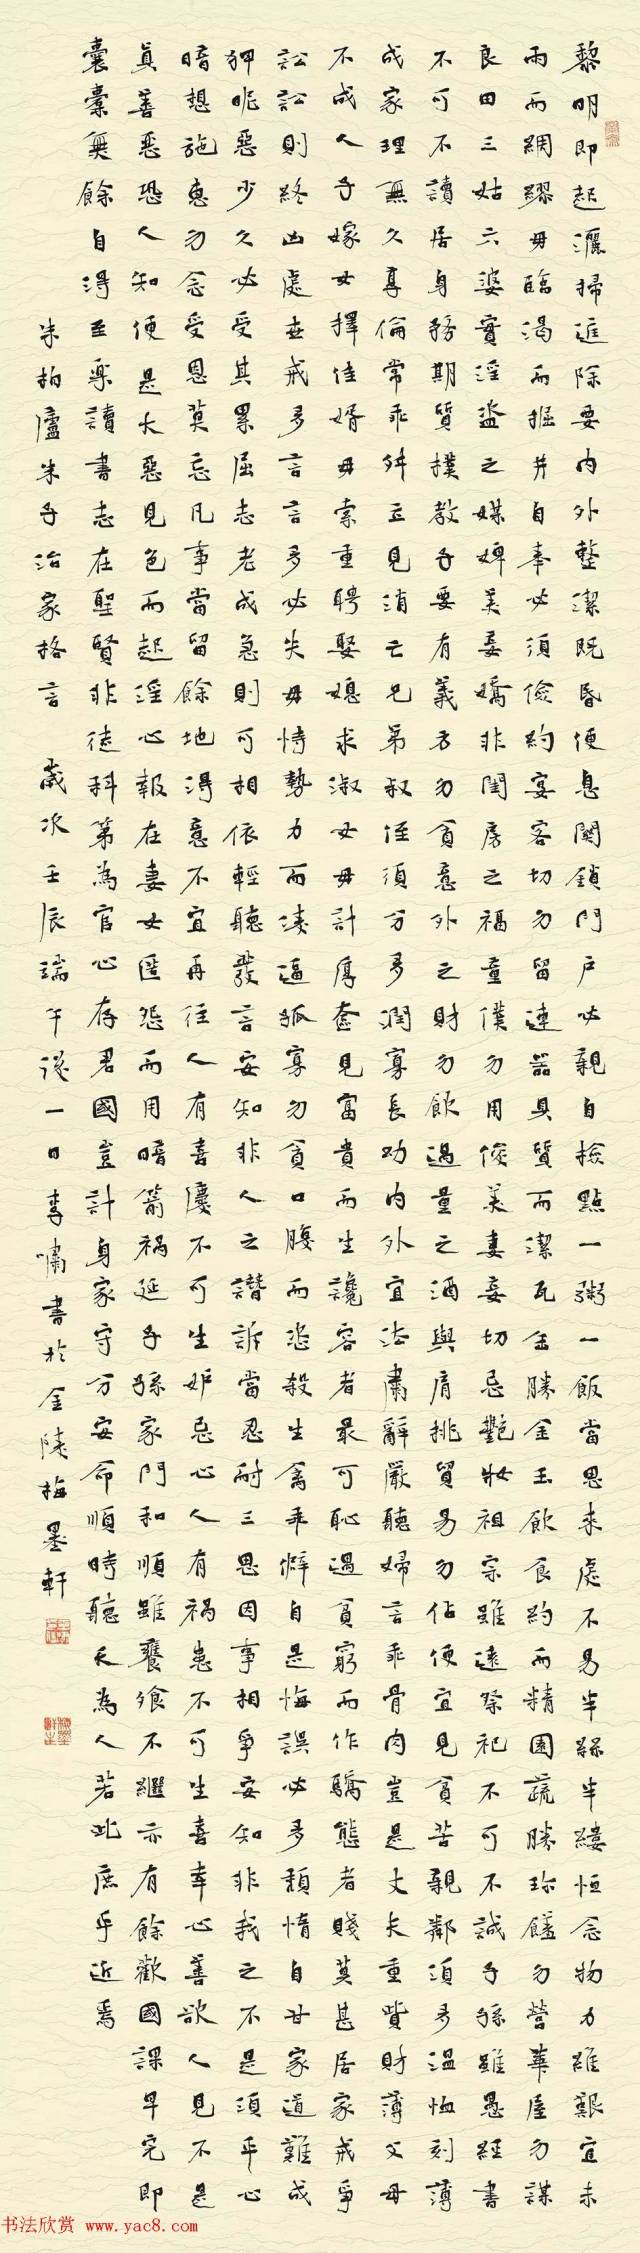 黎明即起灑掃庭除要內外整潔既昏便息關鎖門戶必親自檢點一粥一飯當思來處不易半絲半縷恒念物力維艱宜未
雨而綢繆毋臨渴而掘井自奉必須儉約宴客切勿留連器具質而潔瓦缶勝金玉飲食約而精園蔬勝珍饈勿營華屋勿謀
良田三姑六婆實淫盜之媒婢美妾嬌非閨房之福童僕勿用俊美妻妾切忌艷妝祖宗雖遠祭祀不可不誠子孫雖愚經書
不可不讀居身務期質樸教子要有義方勿貪意外之財勿飲過量之酒與肩挑貿易勿佔便宜見貧苦親鄰須多溫恤刻薄
成家理無久享倫常乖舛立見消亡兄弟叔侄須分多潤寡長幼內外宜法肅辭嚴聽婦言乖骨肉豈是丈夫重貲財薄父母
不成人子嫁女擇佳婿毋索重聘娶媳求淑女毋計厚奩見富貴而生讒容者最可恥過貧窮而作驕態者賤莫甚居家戒爭
訟訟則終凶處世戒多言言多必失毋恃勢力而淩逼孤寡勿貪口腹而恣殺生禽乖僻自是悔誤必多頹惰自甘家道難成
狎昵惡少久必受其累屈志老成急則可相依輕聽發言安知非人之譖訴當忍耐三思因事相爭安知非我之不是須平心
暗想施惠勿念受恩莫忘凡事當留餘地得意不宜再往人有喜慶不可生妒忌心人有禍患不可生喜幸心善欲人見不是
真善惡恐人知便是大惡見色而起淫心報在妻女匿怨而用暗箭禍延子孫家門和順雖饔飧不繼亦有餘歡國課早完即
囊橐無餘自得至樂讀書志在聖賢非徒科第為官心存君國豈計身家守分安命順時聽天為人若此庶乎近焉
朱柏廬朱子治家格言 歲次壬辰端午後一日李嘯書於金陵梅墨軒
书法欣赏 www.yac8.com